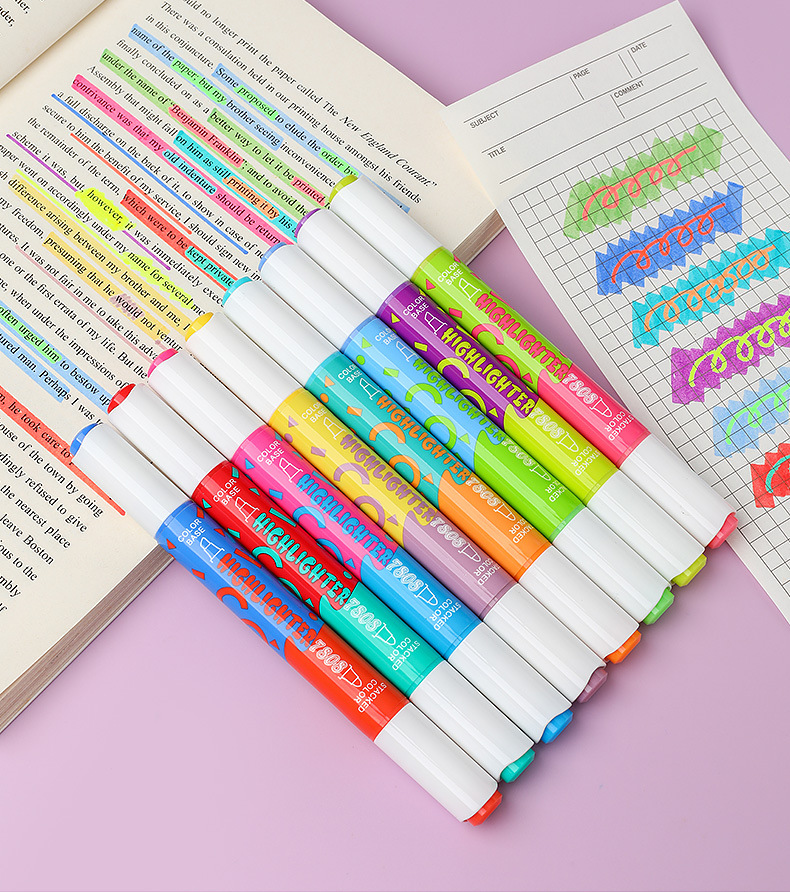 ould no longer print the paper called The New England Courant."
There was a consultation held in our printing house amongst his friends
in this conjuncture. Some proposed to elude the order by
name of the paper, but my brother seeing inconvenience
finally concluded on as a better way to let it be printed
under the name of "Benjamin Franklin"; and to avoid the
Assembly that might fall on him as still printing it by his
contrivance was that my old indenture should be return
a full discharge on the back of it, to show in case of
secure to him the benefit of my service, I should sign new
the remainder of the term, which were to be kept private
scheme it was, but however, it was immediately exec
paper went to accordingly under my name for several mo
difference arising between my brother and me
my freedom, presuming the he would not ventur
I was not fair in me to take this adv
one or the first errata of my life. But the
when under the impressions of
often urged him to bestow up
tured man. Perhaps I was
he took care to
ouse of the town by going
dingly refused to give
the nearest place
leave Boston
ious to the
embly
SUBJECT
PAGE
DATE
TITLE
COMMENT
COLOR BASE
HIGHLIGHTER 7808
STACKED COLOR
COLOR BASE
HIGHLIGHTER 7808
STACKED COLOR
COLOR BASE
HIGHLIGHTER 7808
STACKED COLOR
COLOR BASE
HIGHLIGHTER 7808
STACKED COLOR
COLOR BASE
HIGHLIGHTER 7808
STACKED COLOR
COLOR BASE
HIGHLIGHTER 7808
STACKED COLOR
COLOR BASE
HIGHLIGHTER 7808
STACKED COLOR
COLOR BASE
HIGHLIGHTER 7808
STACKED COLOR